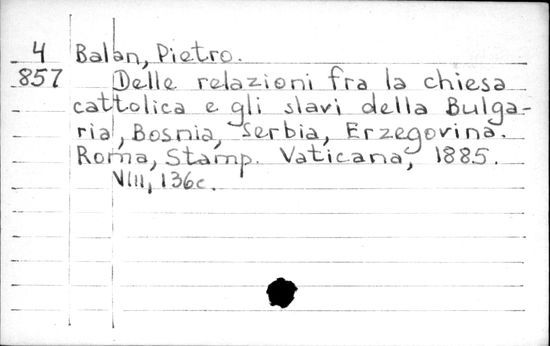 4 Balan, Pietro.
857 Delle relazioni fra la chiesa
cattolica e gli slavi della Bulga-
ria, Bosnia, Serbia, Erzegovina.
Roma, Stamp. Vaticana, 1885.
VIII, 136c.